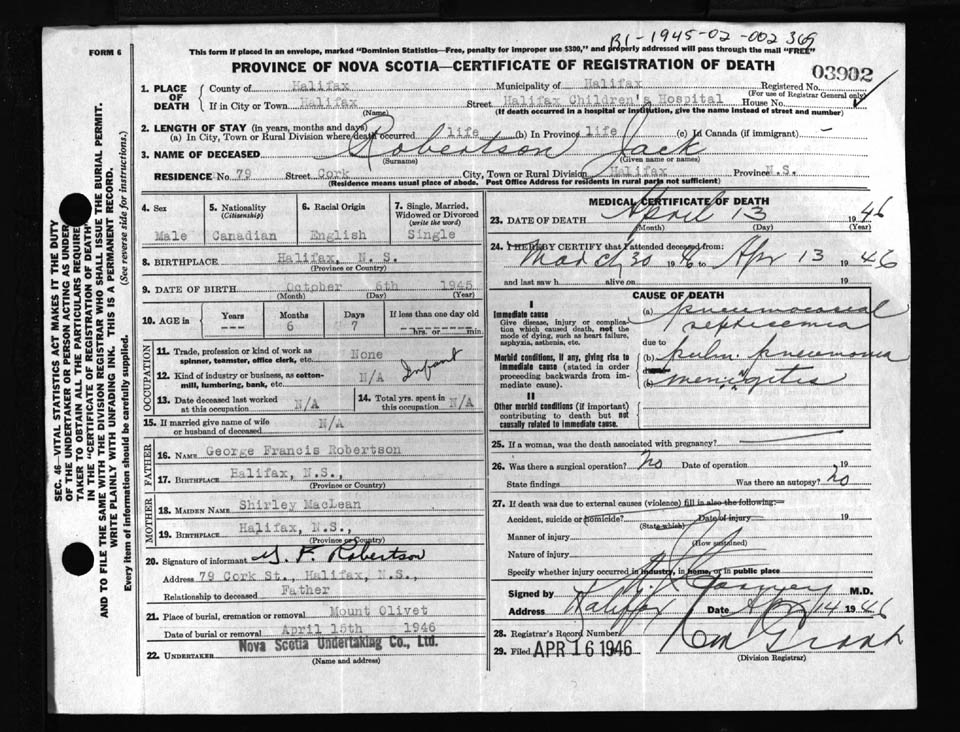 B1-1945-02-002 369
FORM 6
This form if placed in an envelope, marked "Dominion Statistics—Free, penalty for improper use $300," and properly addressed will pass through the mail "FREE"
PROVINCE OF NOVA SCOTIA—CERTIFICATE OF REGISTRATION OF DEATH
03902
1. PLACE OF DEATH
County of Halifax Municipality of Halifax Registered No.
(For use of Registrar General only)
If in City or Town Halifax Street Halifax Children's Hospital House No.
(Name) (If death occurred in a hospital or institution, give the name instead of street and number)
2. LENGTH OF STAY (in years, months and days)
(a) In City, Town or Rural Division where death occurred life (b) In Province life (c) In Canada (if immigrant) -
3. NAME OF DECEASED Robertson Jack
(Surname) (Given name or names)
RESIDENCE No 79 Street Cork City, Town or Rural Division Halifax Province N.S.
(Residence means usual place of abode. Post Office Address for residents in rural parts not sufficient)
4. Sex 5. Nationality (Citizenship) 6. Racial Origin 7. Single, Married, Widowed or Divorced (write the word)
Male Canadian English Single
8. BIRTHPLACE Halifax, N. S.
(Province or Country)
9. DATE OF BIRTH October 6th 1945
(Month) (Day) (Year)
10. AGE in Years Months Days If less than one day old
6 7 hrs. or min.
OCCUPATION
11. Trade, profession or kind of work as spinner, teamster, office clerk, etc. None
12. Kind of industry or business, as cotton-mill, lumbering, bank, etc. N/A Infant
13. Date deceased last worked at this occupation N/A
14. Total yrs. spent in this occupation N/A
15. If married give name of wife or husband of deceased N/A
FATHER
16. Name George Francis Robertson
17. Birthplace Halifax, N.S.,
(Province or Country)
MOTHER
18. Maiden Name Shirley MacLean
19. Birthplace Halifax, N.S.,
(Province or Country)
20. Signature of informant G. F. Robertson
Address 79 Cork St., Halifax, N.S.,
Relationship to deceased Father
21. Place of burial, cremation or removal Mount Olivet
Date of burial or removal April 15th 1946
22. UNDERTAKER Nova Scotia Undertaking Co., Ltd.
(Name and address)
MEDICAL CERTIFICATE OF DEATH
23. DATE OF DEATH April 13 1946
(Month) (Day) (Year)
24. I HEREBY CERTIFY that I attended deceased from:
March 30 1946 to Apr 13 1946
and last saw h alive on 19
CAUSE OF DEATH
I
Immediate cause
Give disease, injury or complication which caused death, not the mode of dying, such as heart failure, asphyxia, asthenia, etc.
(a) pneumococcal
septicemia
due to
Morbid conditions, if any, giving rise to immediate cause (stated in order proceeding backwards from immediate cause).
(b) pulm. pneumonia
meningitis
II
Other morbid conditions (if important) contributing to death but not causally related to immediate cause.
25. If a woman, was the death associated with pregnancy?
26. Was there a surgical operation? No Date of operation 19
State findings Was there an autopsy? No
27. If death was due to external causes (violence) fill in also the following:
Accident, suicide or homicide? Date of injury 19
(State which)
Manner of injury
(How sustained)
Nature of injury
Specify whether injury occurred in industry, in home, or in public place
Signed by M.D.
Address Halifax Date Apr 14 1946
28. Registrar's Record Number
29. Filed APR 16 1946
(Division Registrar)
SEC. 46—VITAL STATISTICS ACT MAKES IT THE DUTY
OF THE UNDERTAKER OR PERSON ACTING AS UNDER
TAKER TO OBTAIN ALL THE PARTICULARS REQUIRE
IN THE "CERTIFICATE OF REGISTRATION OF DEATH"
AND TO FILE THE SAME WITH THE DIVISION REGISTRAR WHO SHALL ISSUE THE BURIAL PERMIT.
WRITE PLAINLY WITH UNFADING INK. THIS IS A PERMANENT RECORD.
Every item of information should be carefully supplied. (See reverse side for instructions.)